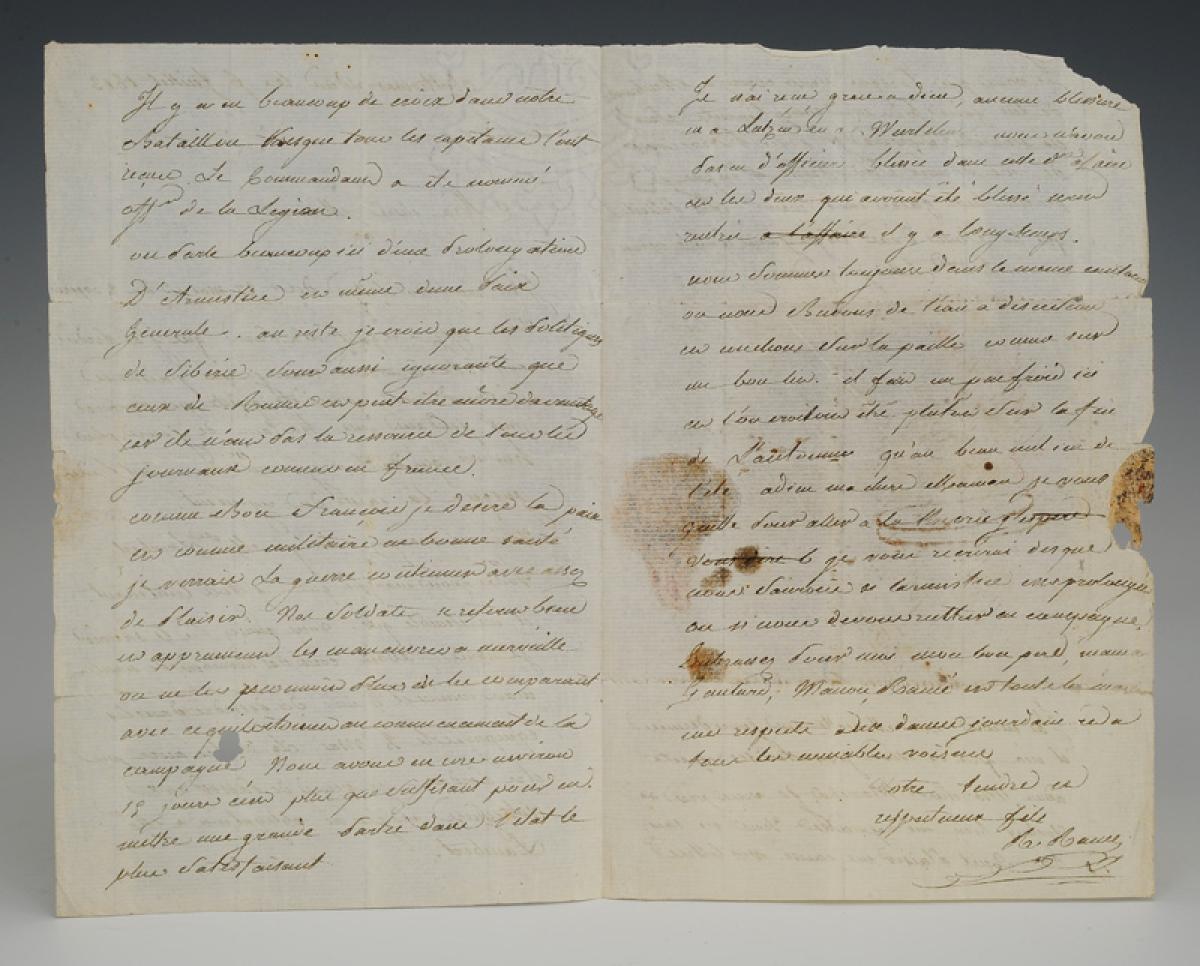 Il y a eu beaucoup de croix dans notre
Bataillon presque tous les capitaine l'ont
reçue. Le Commandant a été nommé
off.er de la Légion.
on parle beaucoup ici d'une prolongation
D'Armistice et même d'une paix
Générale. au reste je crois que les politiques
de Silérie sont aussi ignorants que
ceux de et peut être encore davantage
car ils n'ont pas la ressource de tous les
journaux comme en france.
comme Bon François je désire la paix
et comme militaire en bonne santé
je verrais la guerre continuer avec assez
de plaisir. Nos soldats se reforme bien
et apprennent les manoeuvres a merveille
on ne les reconnoit plus en les comparant
avec ce qu'ils etoient au commencement de la
campagne. Nous avons encore environ
15 jours c'est plus que suffisant pour en
mettre une grande partie dans l'état le
plus satisfaisant
Je n'ai reçu grace a dieu, aucune blessure
ni a Lutzen ni a nous n'avons
pas eu d'officier blessé dans cette d.re affaire
et les deux qui avoient été blessé sont
rentrée a l'affaire il y a longtemps.
nous sommes toujours dans le même
ou nous Buvons de l'eau a discrétion
et couchons sur la paille comme sur
un bon lit. il fait un peu froid ici
et l'on croiroit être plutôt sur la fin
de l'automne qu'au beau milieu de
l'été adieu ma chère Maman je vous
quitte pour aller a
je vous récrirai des que
nous saurons si l'armistice est prolongée
ou si nous devons rentrer en campagne.
Embrassez pour moi mon bon père, maman
, Manon, et toute la
mes respects aux dames jourdain et a
tous les aimables voisins
Votre tendre et
respectueux fils
R.